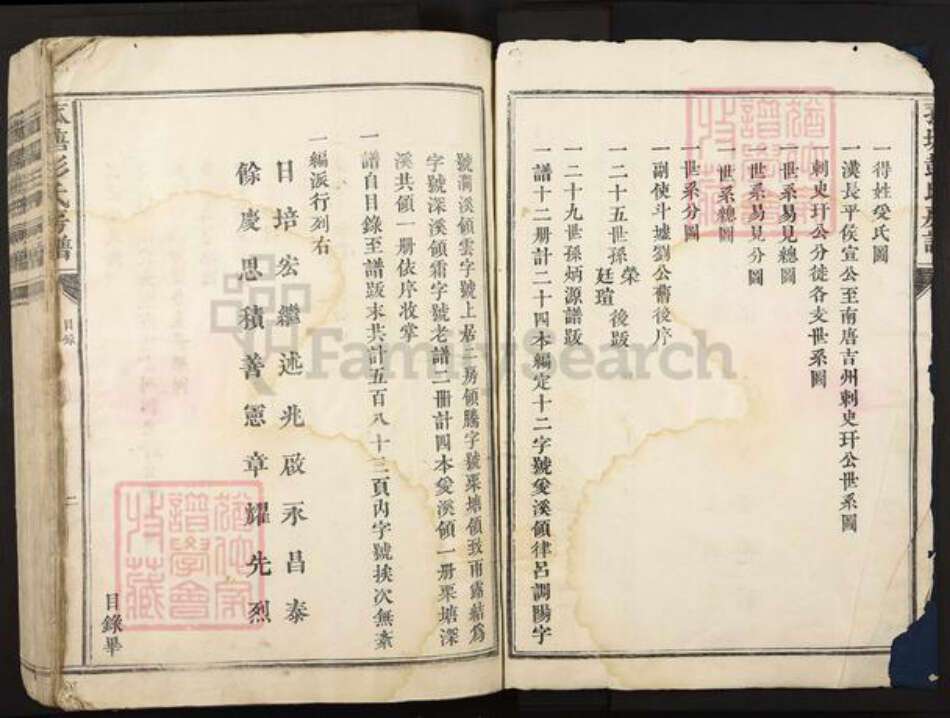 一得姓受氏圖
一漢長平侯宣公至南唐吉州刺史玕公世系圖
刺史玕公分徙各支世系圖
一世系易見總圖
世系易見分圖
一世系總圖
一世系分圖
一副使斗墟劉公舊後序
一二十五世孫 榮 廷瑄 後跋
一二十九世孫炳源譜跋
一譜十二册計二十四本編定十二字號爰溪領律呂調陽字
號澗溪領雲字號上居二房領騰字號栗塘領致雨露結爲
字號深溪領霜字號老譜二冊計四本爰溪領一册栗塘深
溪共領一册依序收掌
一譜自目錄至譜跋末共計五百八十三頁內字號挨次無紊
一編派行列右
日培宏繼述兆啟永昌泰
餘慶思積善憲章耀先烈
目錄畢
彭氏房譜
目錄
二
FamilySearch
譜學會
收藏
譜學會
收藏